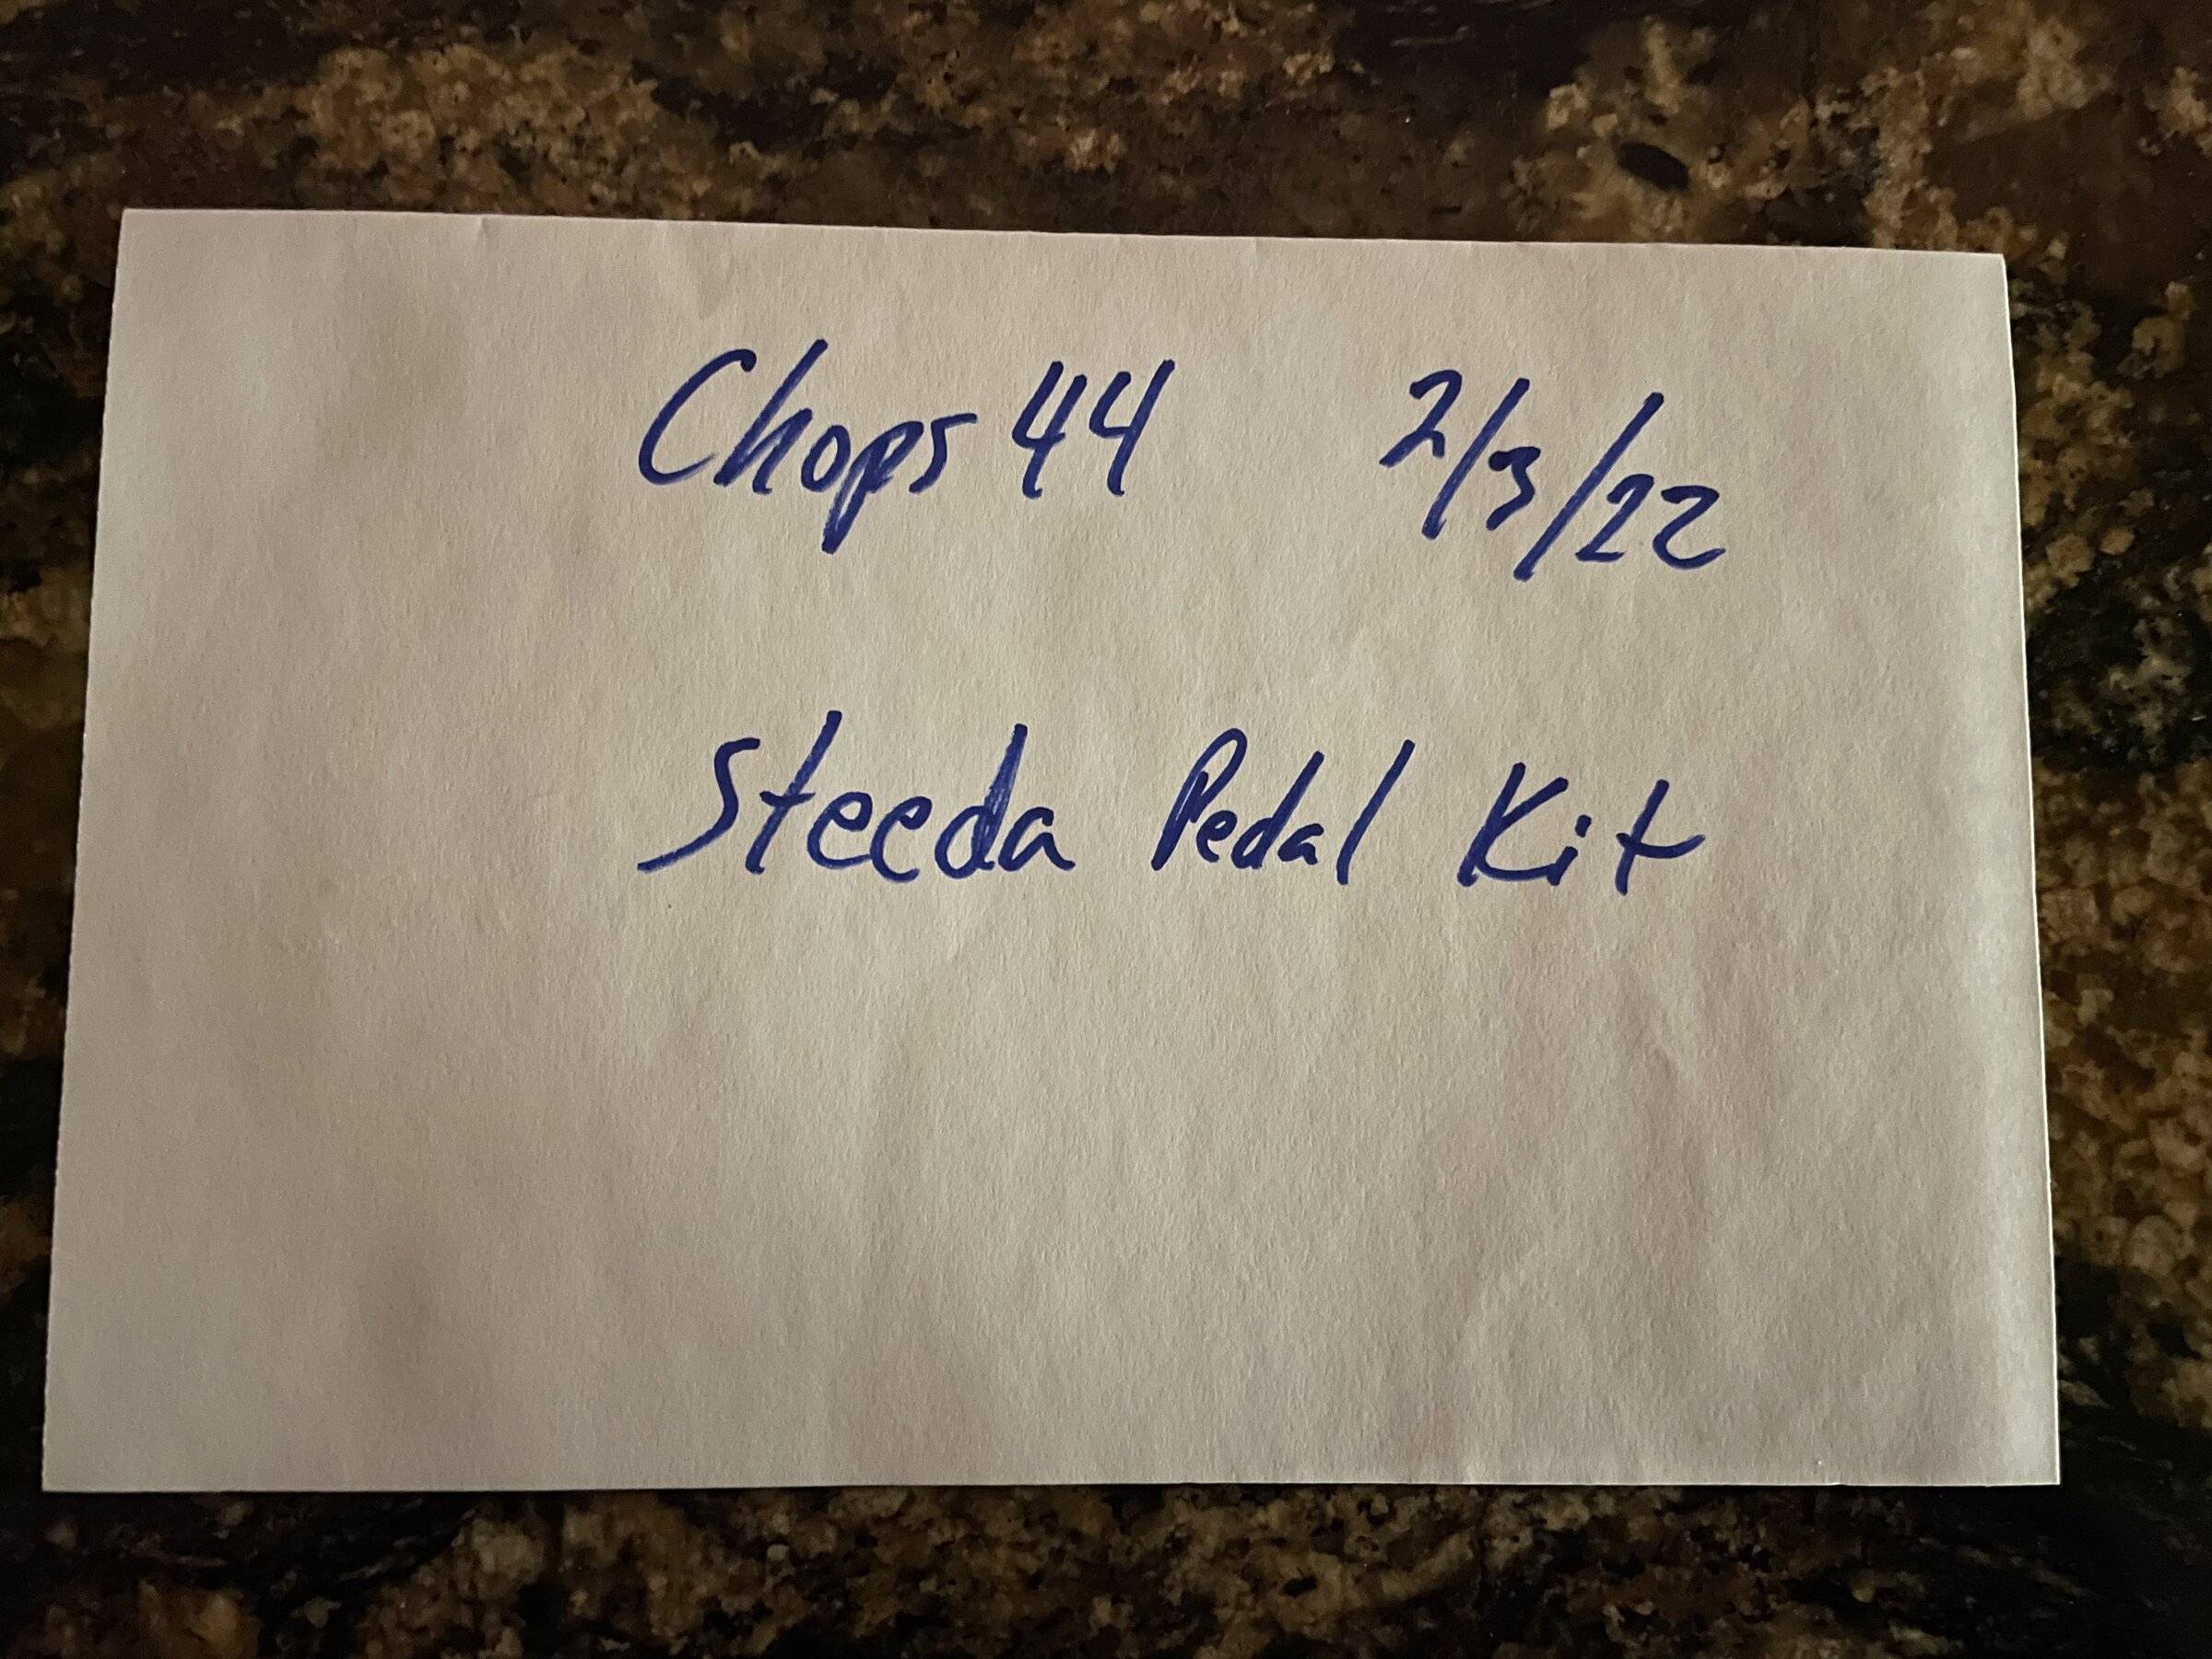 Chops 44 2/3/22
Steeda Pedal Kit